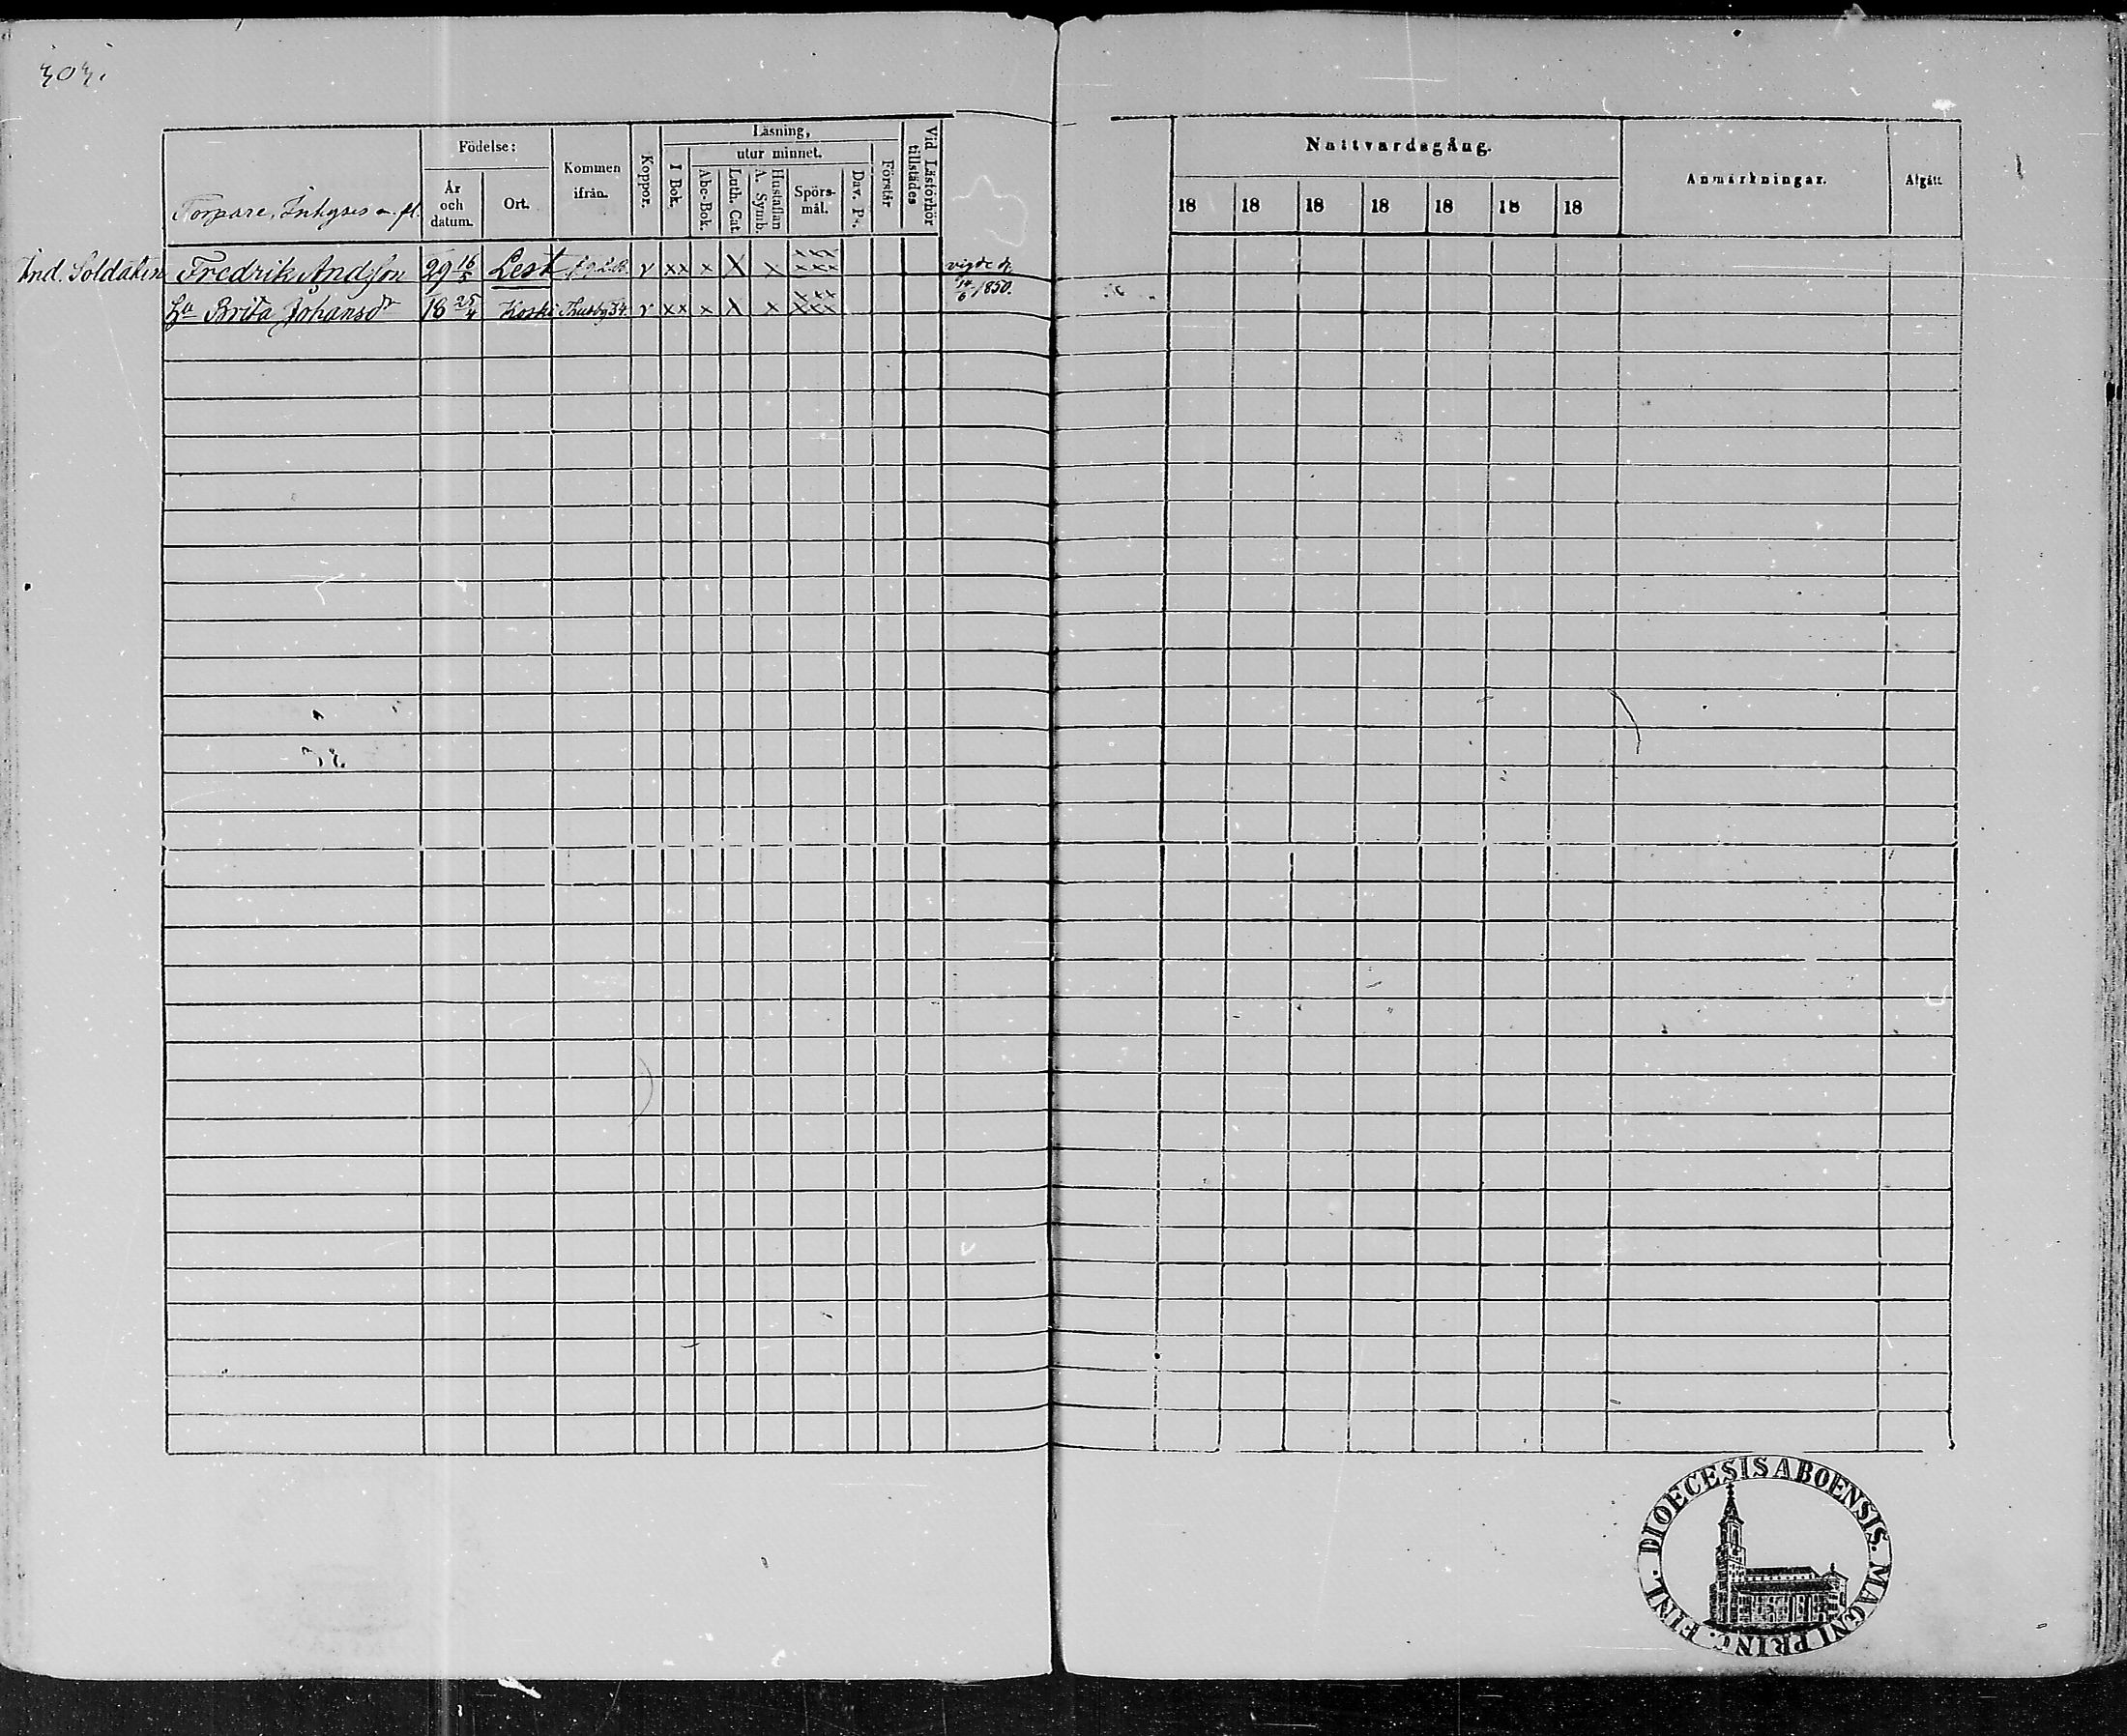 303.
Torpare, Inhyses m. fl.
Födelse:
År och datum.
Ort.
Kommen ifrån.
Koppor.
Läsning,
I Bok.
utur minnet.
Abc-Bok.
Luth. Cat.
Hustaflan A. Symb.
Spörsmål.
Dav. Ps.
Förstår
Vid Läsförhör tillstädes
Nattvardsgång.
18 18 18 18 18 18 18
Anmärkningar.
Afgått.
Ind. Soldaten Fredrik Andsson 29 16/5 Lest v xx x X x xxx xxx vigde d.
14/6 1850.
Hu Brita Johansdr 18 25/4 Koski Thusby 34. v xx x X x xxx xxx
DIOECESIS ABOENSIS. MAGNI PRINC. FINL.